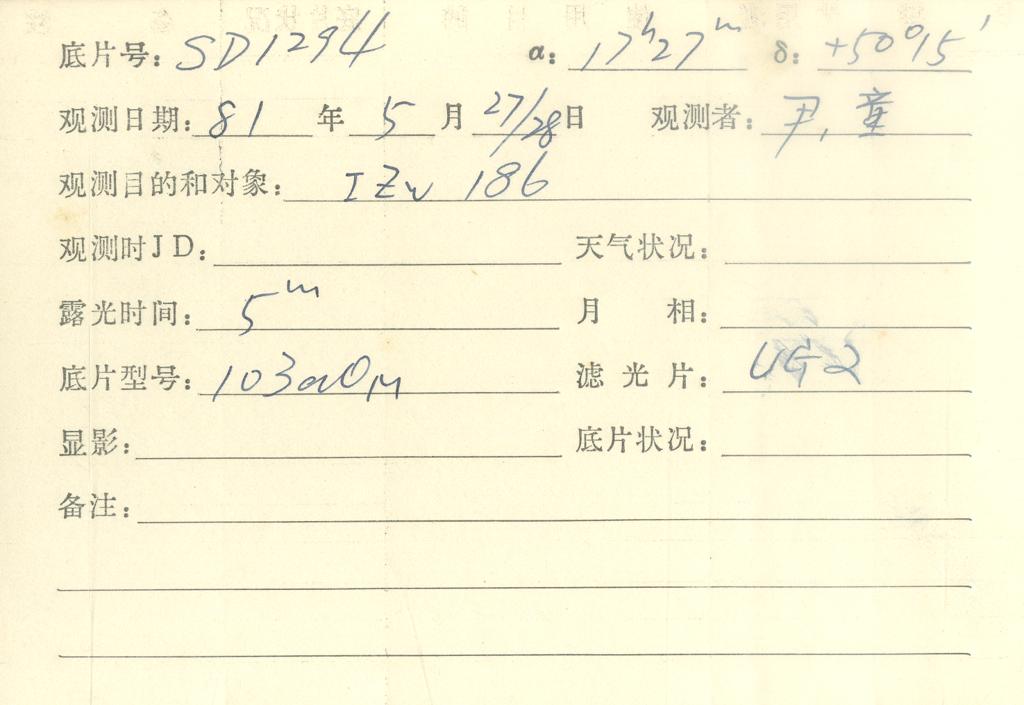 底片号: SD1294 α: 17ʰ27ᵐ δ: +50°15′
观测日期: 81 年 5 月 27/28 日 观测者: 尹, 童
观测目的和对象: I Zw 186
观测时JD: 天气状况:
露光时间: 5ᵐ 月 相:
底片型号: 103aO 滤光片: UG2
显影: 底片状况:
备注: